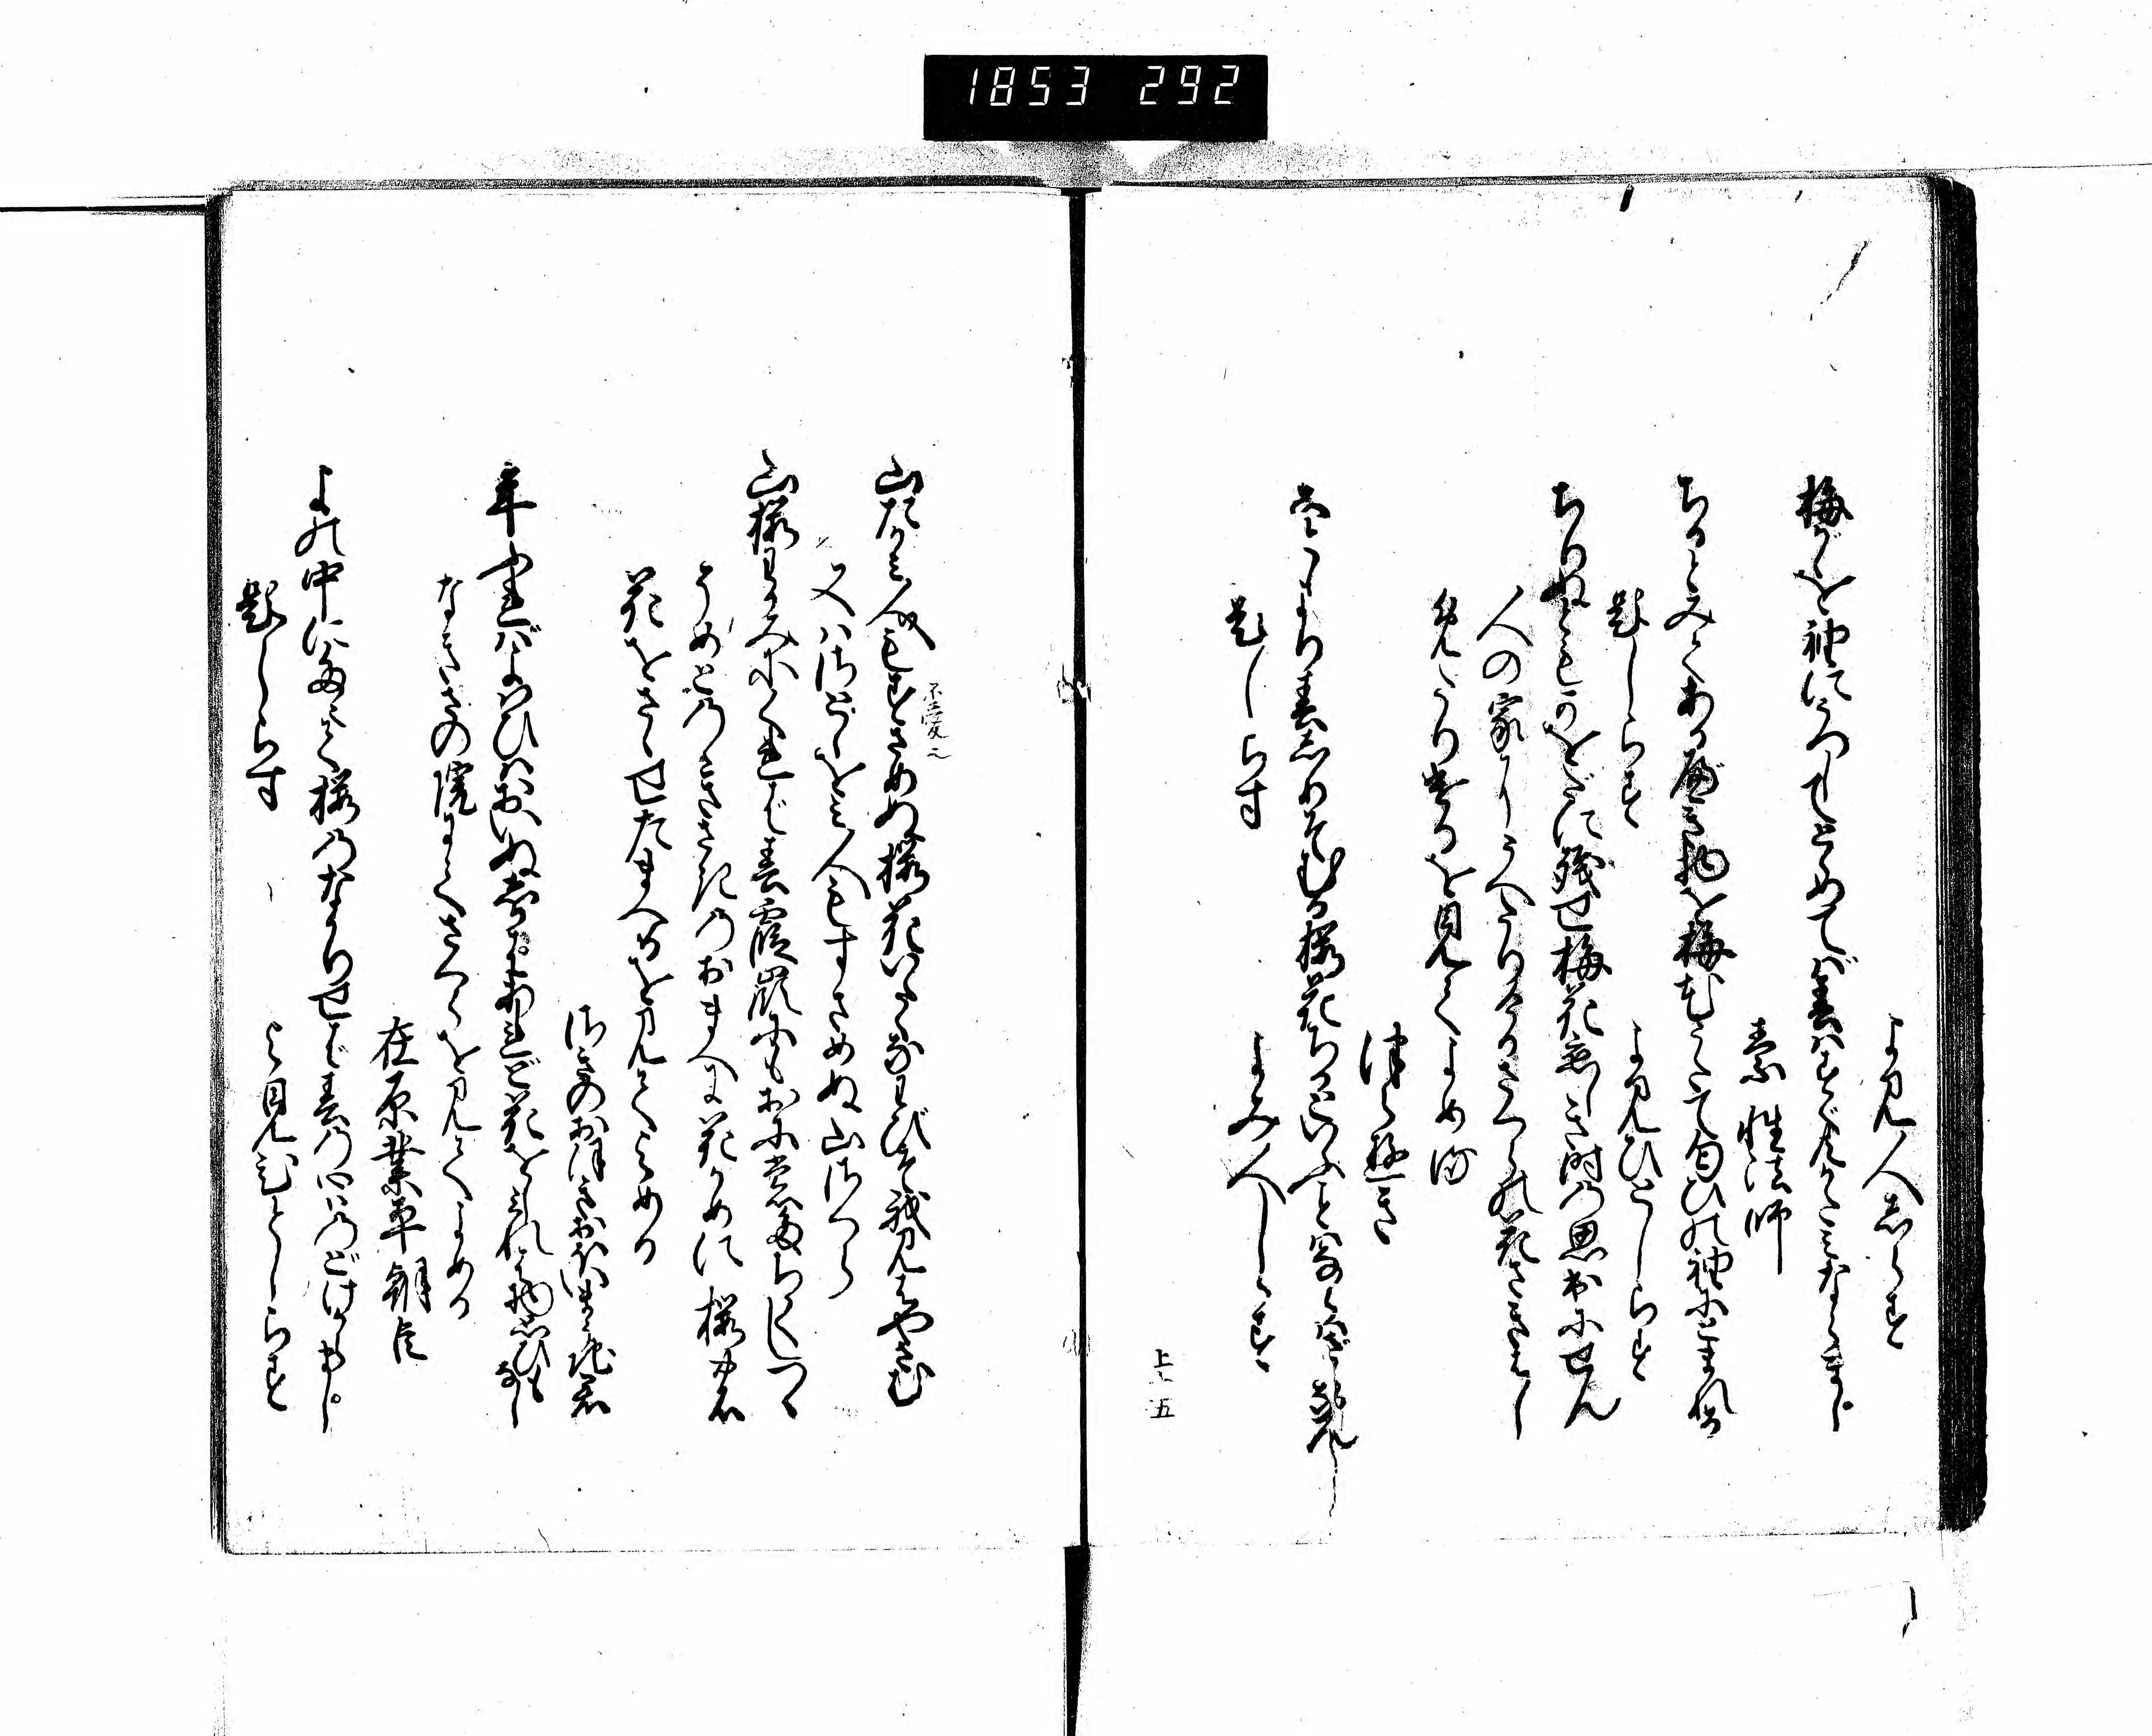 1853 292
よみ人しらす
梅がかを袖にうつしてとめてば春はすぐともかたみならまし
素性法師
ちるとみてあるべき物を梅花うたて匂ひの袖にとまれる
題しらす　よみひとしらす
ちりぬともかをだに残せ梅花恋しき時の思出にせん
人の家にうへたりけるさくらの花さきはし
めたりけるを見てよめる
つらゆき
ことしより春しりそむる桜花ちるといふ事はならはざらなん
題しらす　よみ人しらす
上ノ五
山たかみ人もすさめぬ桜花いたくなわびそ我見はやさむ
不愛之
又はさとをみ人もすさめぬ山さくら
山桜わがみにくれば春霞嶺にもおにも立かくしつゝ
そめどのゝきさきのおまへに花かめに桜の花
花をさゝせたまへるを見てよめる
さきのおほきおほいまうち君
年ふればよはひはおいぬしかはあれど花をしみれば物思ひもなし
なきさの院にてさくらを見てよめる
在原業平朝臣
よの中にたえて桜のなかりせば春の心はのどけからまし
題しらす　よみ見ひとしらす